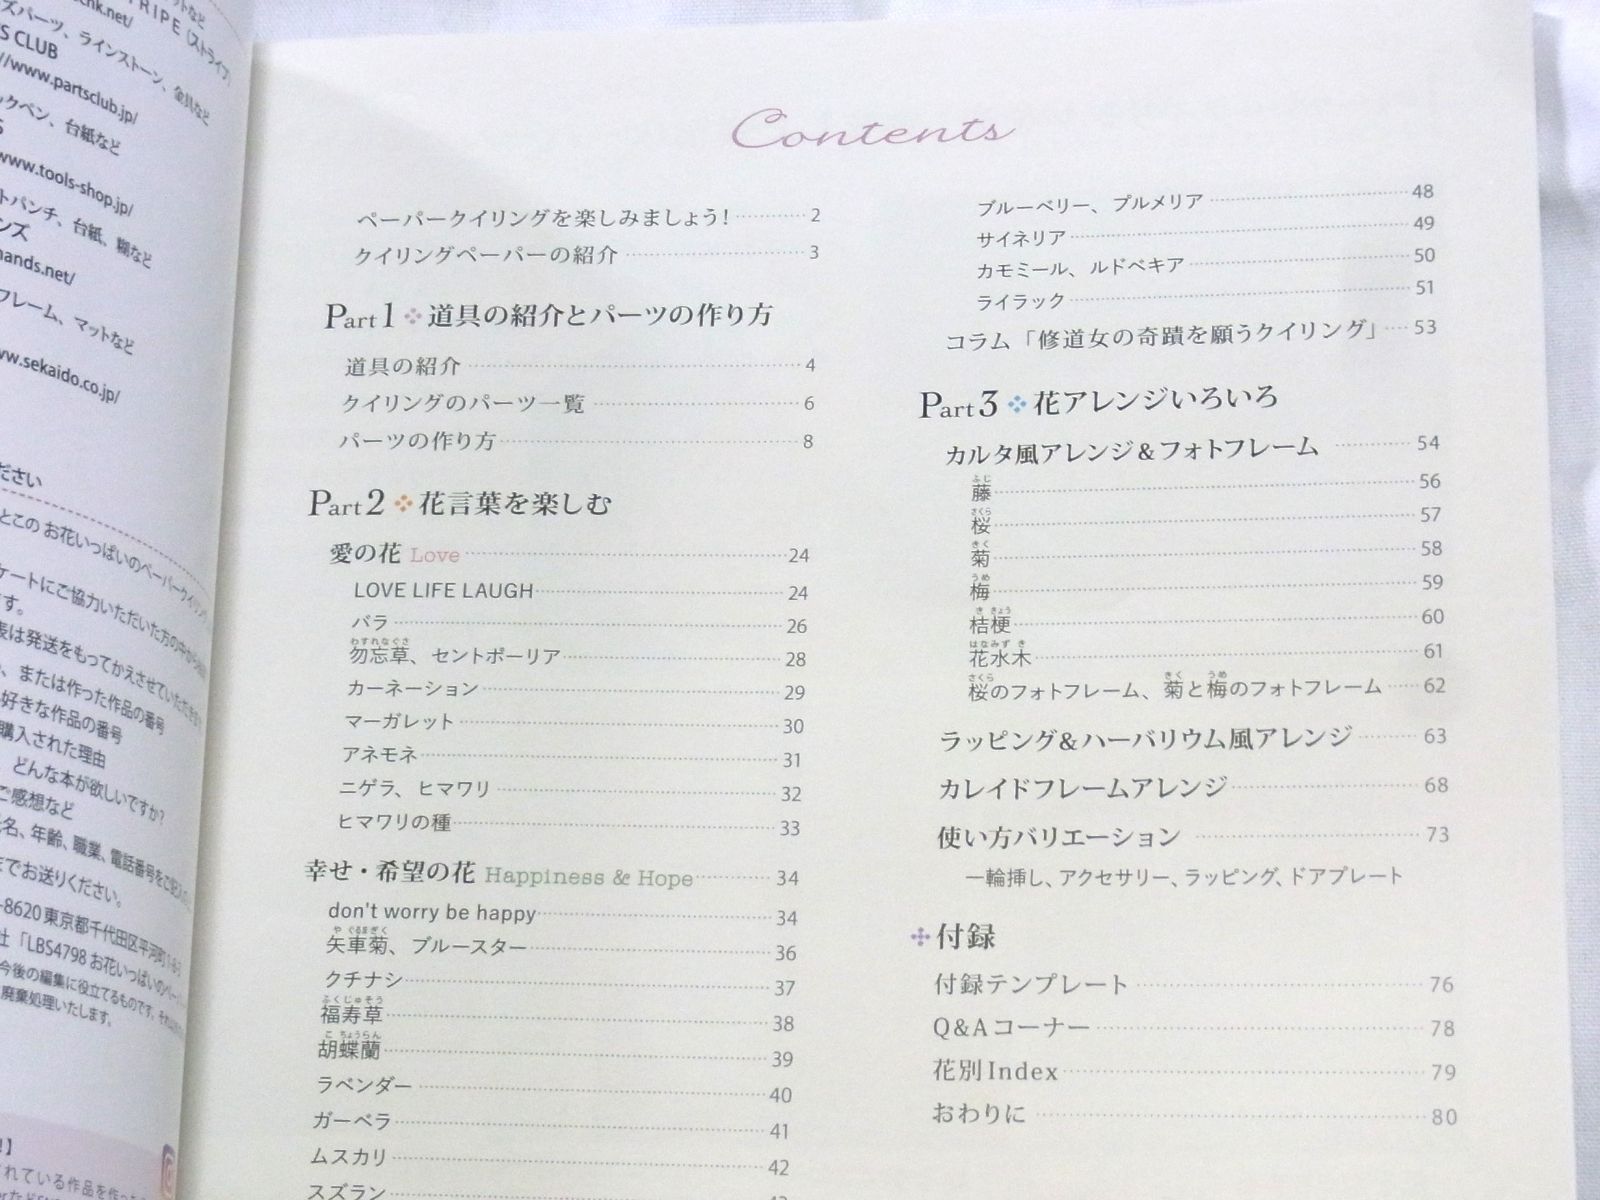 TRIPE（ストライプ）
ズパーツ、ラインストーン、金具など
S CLUB
//www.partsclub.jp/
ックペン、台紙など
www.tools-shop.jp/
トパンチ、台紙、糊など
ンズ
hands.net/
フレーム、マットなど
ww.sekaido.co.jp/
ださい
とこの お花いっぱいのペーパークイリング
ケートにご協力いただいた方の中から
ます。
表は発送をもってかえさせていただきます
、または作った作品の番号
好きな作品の番号
購入された理由
どんな本が欲しいですか?
ご感想など
氏名、年齢、職業、電話番号をご記入の
までお送りください。
-8620 東京都千代田区平河町1-8-
社「LBS4798 お花いっぱいのペーパー
今後の編集に役立てるものです。
廃棄処理いたします。
Contents
ペーパークイリングを楽しみましょう! 2
クイリングペーパーの紹介 3
Part1 道具の紹介とパーツの作り方
道具の紹介 4
クイリングのパーツ一覧 6
パーツの作り方 8
Part2 花言葉を楽しむ
愛の花 Love 24
LOVE LIFE LAUGH 24
バラ 26
わすれなぐさ
勿忘草、セントポーリア 28
カーネーション 29
マーガレット 30
アネモネ 31
ニゲラ、ヒマワリ 32
ヒマワリの種 33
幸せ・希望の花 Happiness & Hope 34
don't worry be happy 34
や ぐるまぎく
矢車菊、ブルースター 36
クチナシ 37
ふくじゅそう
福寿草 38
こ ちょうらん
胡蝶蘭 39
ラベンダー 40
ガーベラ 41
ムスカリ 42
スズラン
ブルーベリー、プルメリア 48
サイネリア 49
カモミール、ルドベキア 50
ライラック 51
コラム「修道女の奇蹟を願うクイリング」 53
Part3 花アレンジいろいろ
カルタ風アレンジ&フォトフレーム 54
ふじ
藤 56
さくら
桜 57
きく
菊 58
うめ
梅 59
き きょう
桔梗 60
はなみず き
花水木 61
さくら きく うめ
桜のフォトフレーム、菊と梅のフォトフレーム 62
ラッピング&ハーバリウム風アレンジ 63
カレイドフレームアレンジ 68
使い方バリエーション 73
一輪挿し、アクセサリー、ラッピング、ドアプレート
付録
付録テンプレート 76
Q&Aコーナー 78
花別Index 79
おわりに 80